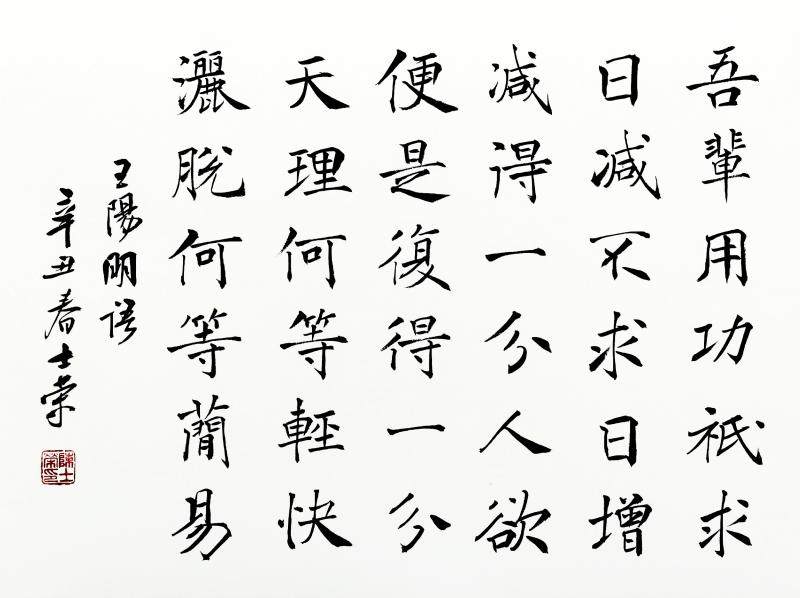 吾輩用功祇求
日減不求日增
減得一分人欲
便是復得一分
天理何等輕快
灑脫何等蕳易
王陽明語
辛丑春士荣
陳士榮印